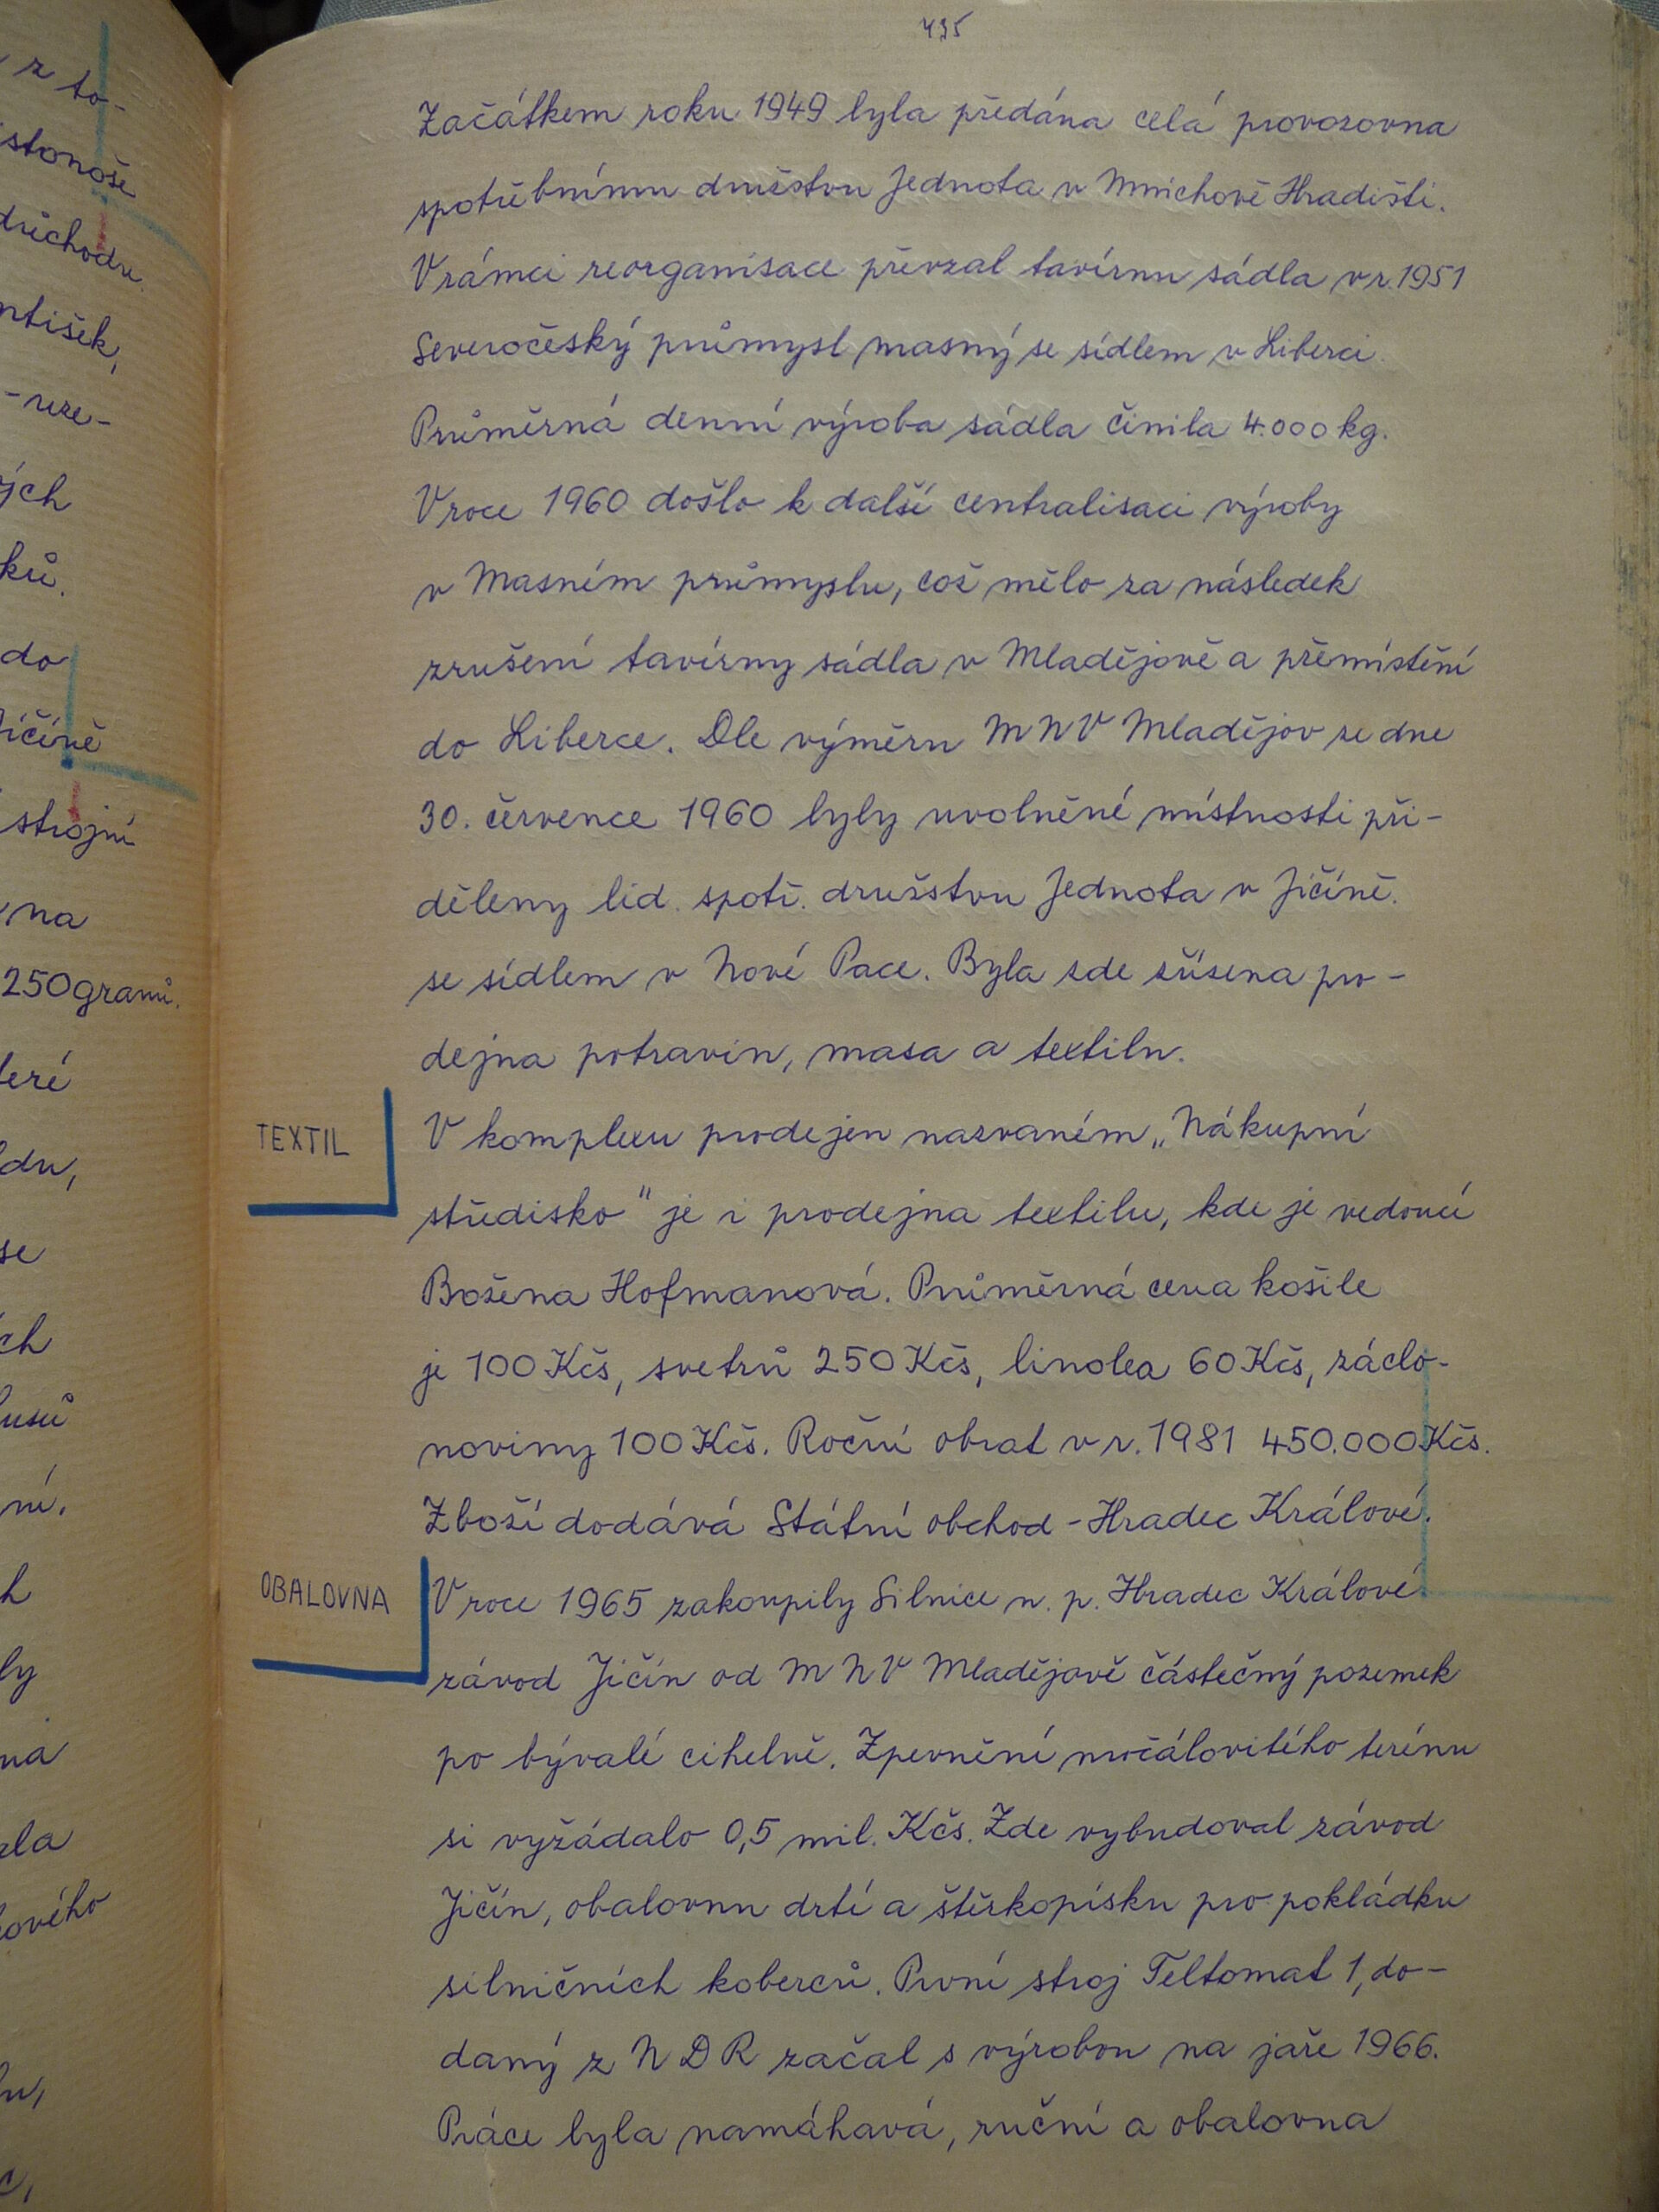 z to-
stonoše
důchodu.
ntišek,
-reze-
ých
ků.
do
Jičíně
strojní
na
250 gramů.
teré
du,
se
ch
usů
ní.
h
ly
ná
zla
kového
435
Začátkem roku 1949 byla předána celá provozovna
spotřebnímu družstvu Jednota v Mnichově Hradišti.
V rámci reorganisace převzal tavírnu sádla v r. 1951
Severočeský průmysl masný se sídlem v Liberci.
Průměrná denní výroba sádla činila 4.000 kg.
V roce 1960 došlo k další centralisaci výroby
v Masném průmyslu, což mělo za následek
zrušení tavírny sádla v Mladějově a přemístění
do Liberce. Dle výměru MNV Mladějov ze dne
30. července 1960 byly uvolněné místnosti při-
děleny lid. spotř. družstvu Jednota v Jičíně.
se sídlem v Nové Pace. Byla zde zřízena pro-
dejna potravin, masa a textilu.
TEXTIL
V komplexu prodejen nazvaném „Nákupní
středisko" je i prodejna textilu, kde je vedoucí
Božena Hofmanová. Průměrná cena košile
je 100 Kčs, svetrů 250 Kčs, linolea 60 Kčs, záclo-
noviny 100 Kčs. Roční obrat v r. 1981 450.000 Kčs.
Zboží dodává Státní obchod - Hradec Králové.
OBALOVNA
V roce 1965 zakoupily Silnice n. p. Hradec Králové
závod Jičín od MNV Mladějově částečný pozemek
po bývalé cihelně. Zpevnění močálovitého terénu
si vyžádalo 0,5 mil. Kčs. Zde vybudoval závod
Jičín, obalovnu drtí a štěrkopísku pro pokládku
silničních koberců. První stroj Teltomat 1, do-
daný z NDR začal s výrobou na jaře 1966.
Práce byla namáhavá, ruční a obalovna